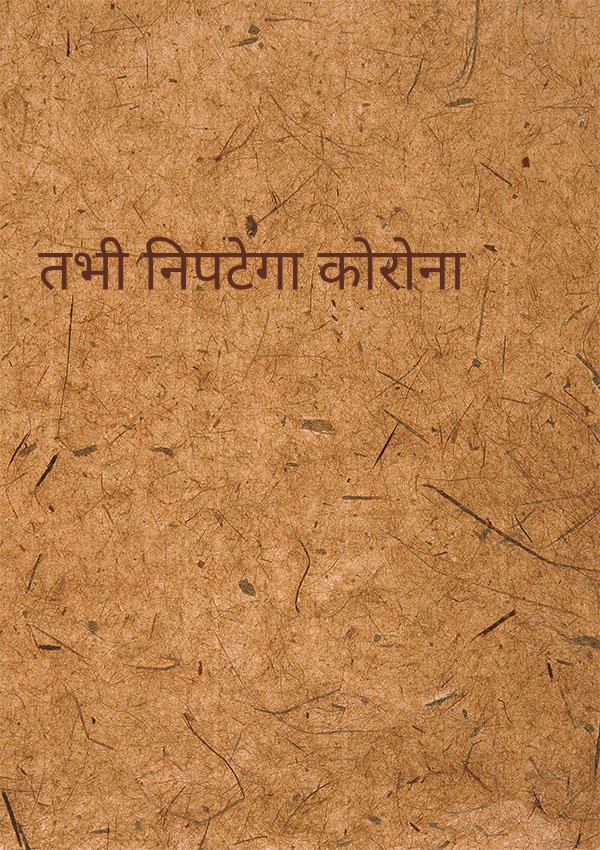 तभी निपटेगा कोरोना